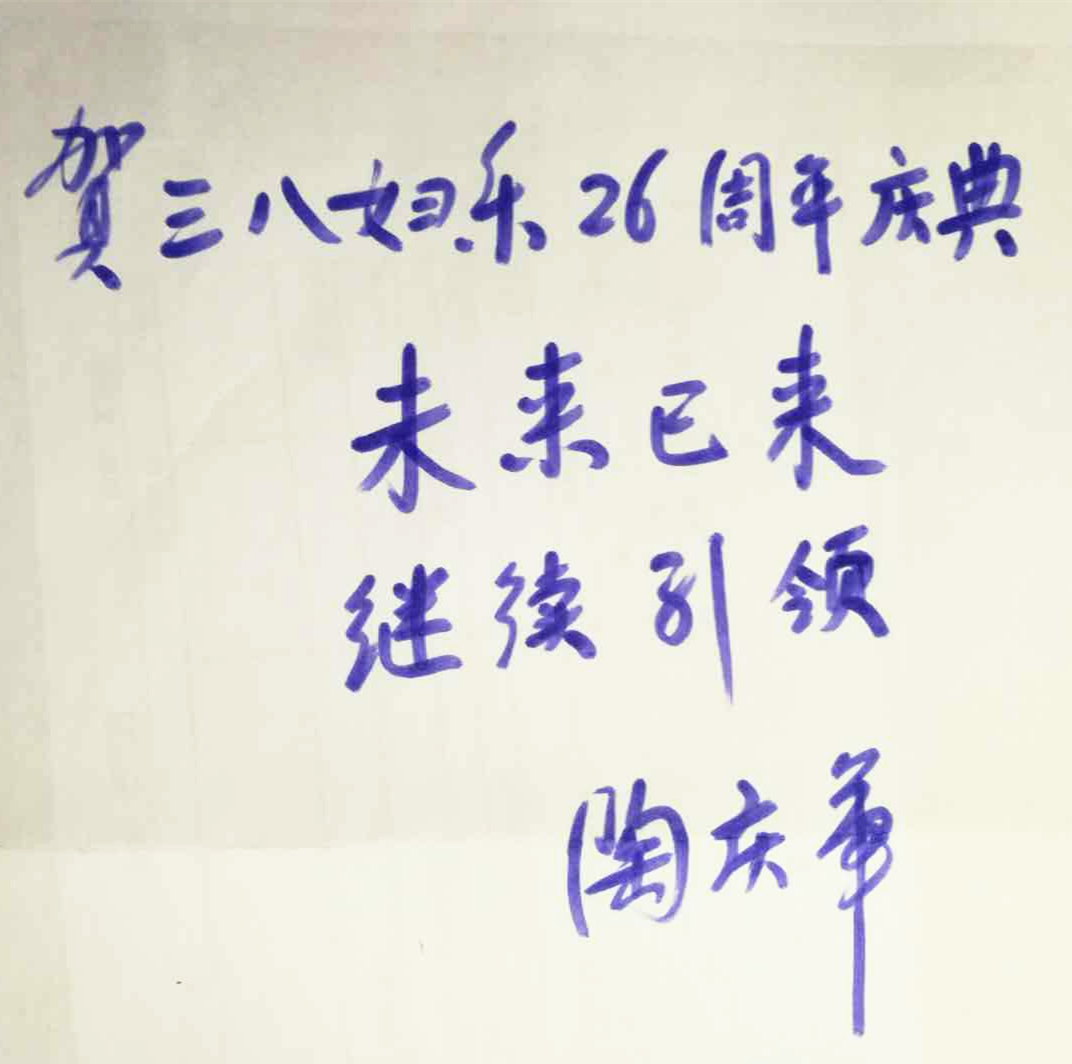 贺三八妇乐26周年庆典
未来已来
继续引领
陶庆华